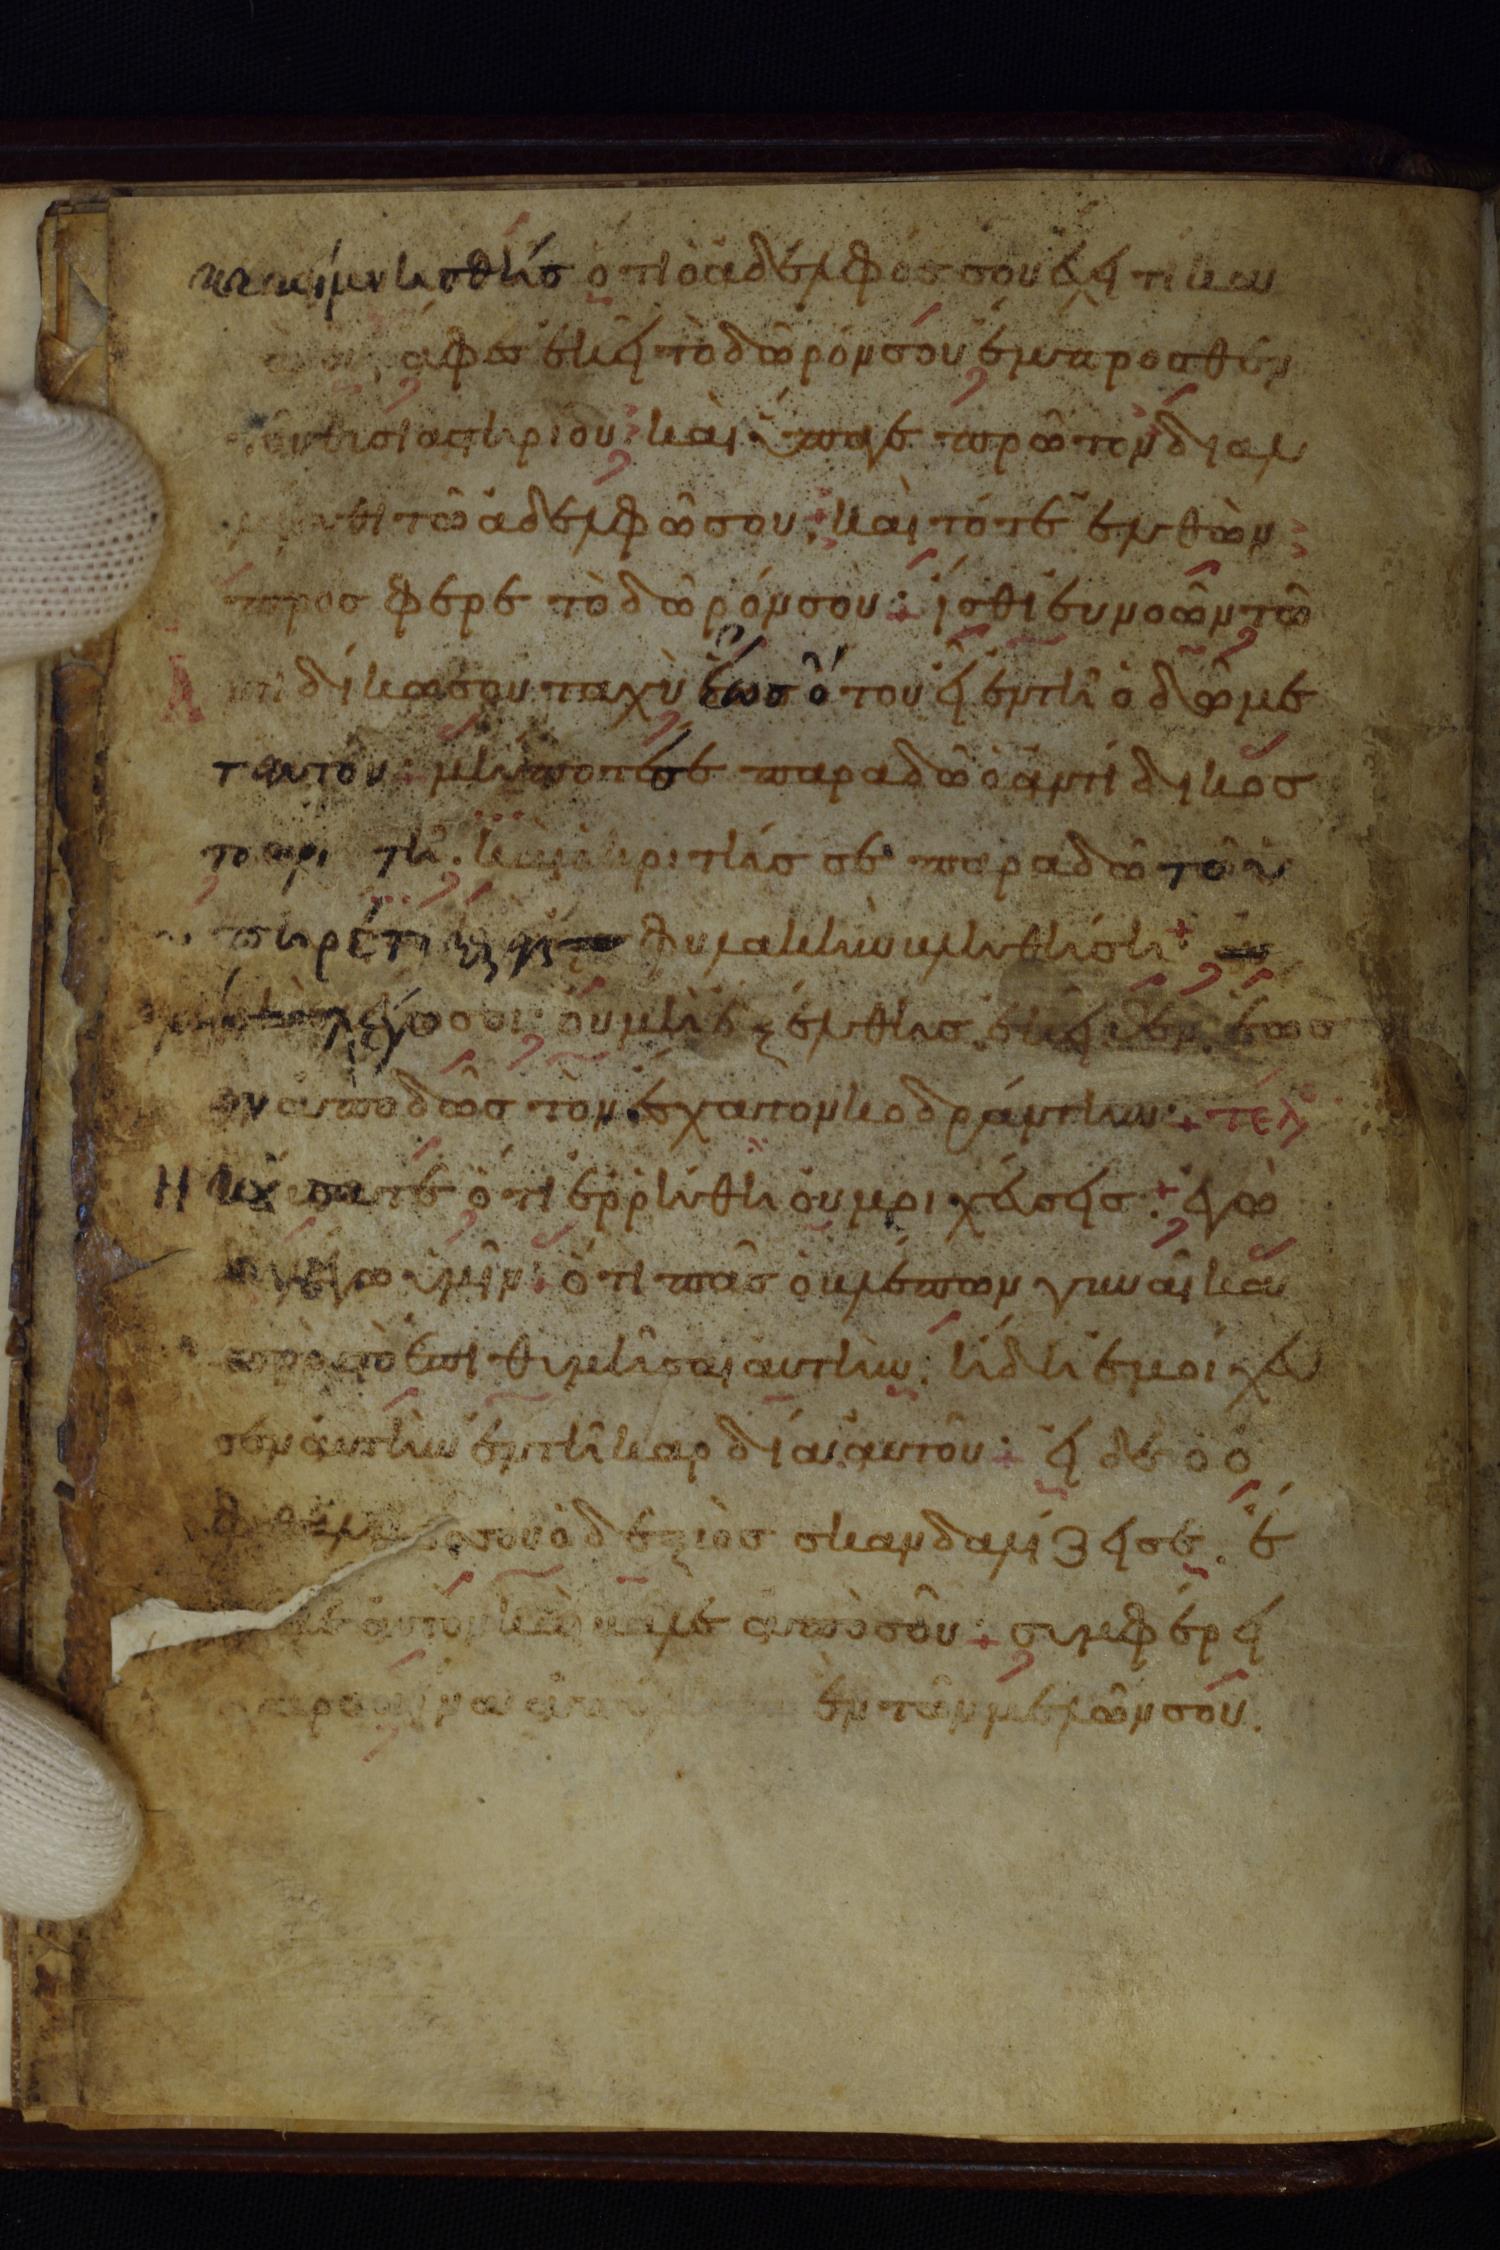 κακει μνησθης ὁτι ὁ ἀδελφός σου ἔχει τι κα
ἄφες ἐκεῖ τὸ δῶρόν σου ἔμπροσθεν
θυσιαστηριου· καὶ ὕπαγε πρῶτον διαλ
τῶ ἀδελφῶ σου· καὶ τότε ἐλθὼν
προσφερε τὸ δῶρόν σου· ἴσθι εὐνοῶν τῶ
δίκω σου ταχὺ ἕως ὅτου εἶ ἐν τῆ ὁδῶ με
τ αυτοῦ· μήποτέ σε παραδῶ ὁ ἀντίδικος
τῶ κριτῆ· καὶ ὁ κριτής σε παραδῶ τῶ ὑ
πηρέτη φυλακὴν κληθήση·
λέγω σοι· οὐ μὴ ἐξέλθης ἐκεῖθεν· ἕως
ἂν ἀποδῶς τὸν ἔσχατον κοδράντην· τέλ
Ηκούσατε ὅτι ἐρρήθη οὐ μοιχεύσεις· ἐγὼ
λέγω ὑμῖν· ὅτι πᾶς ὁ βλέπων γυναῖκα
πρὸς τὸ ἐπιθυμῆσαι αὐτὴν· ἤδη ἐμοίχευ
σεν αὐτὴν ἐν τῆ καρδία αὐτοῦ· εἰ δὲ ὁ ὀ
σου ὁ δεξιὸς σκανδαλίζει σε· ἔ
αὐτὸν καὶ βάλε ἀπὸ σοῦ· συμφέρει
ἐν τῶν μελῶν σου.